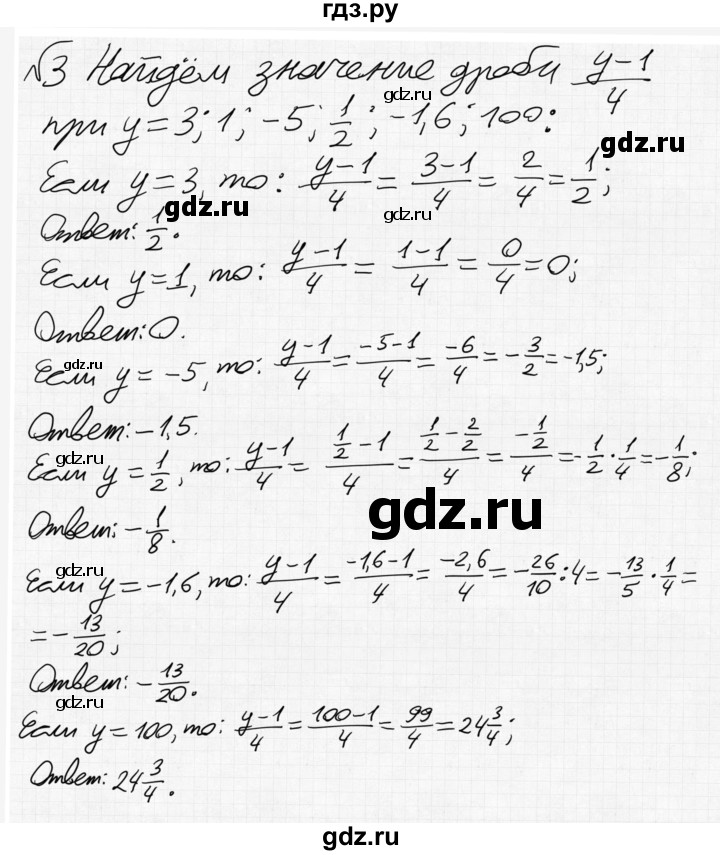 гдз.ру
№3 Найдём значение дроби (y-1)/4
gdz.ru
при y=3; 1; -5; 1/2; -1,6; 100:
gdz.ru
Если y=3, то: (y-1)/4 = (3-1)/4 = 2/4 = 1/2;
gdz.ru gdz.ru
Ответ: 1/2.
Если y=1, то: (y-1)/4 = (1-1)/4 = 0/4 = 0;
Ответ: 0.
gdz.ru
Если y = -5, то: (y-1)/4 = (-5-1)/4 = -6/4 = -3/2 = -1,5;
Ответ: -1,5.
gdz.ru
Если y = 1/2, то: (y-1)/4 = (1/2 - 1)/4 = (1/2 - 2/2)/4 = (-1/2)/4 = -1/2 · 1/4 = -1/8;
gdz.ru
Ответ: -1/8.
gdz.ru
Если y = -1,6, то: (y-1)/4 = (-1,6-1)/4 = -2,6/4 = -26/10 : 4 = -13/5 · 1/4 =
= -13/20;
Ответ: -13/20.
gdz.ru
Если y = 100, то: (y-1)/4 = (100-1)/4 = 99/4 = 24 3/4;
Ответ: 24 3/4.
gdz.ru